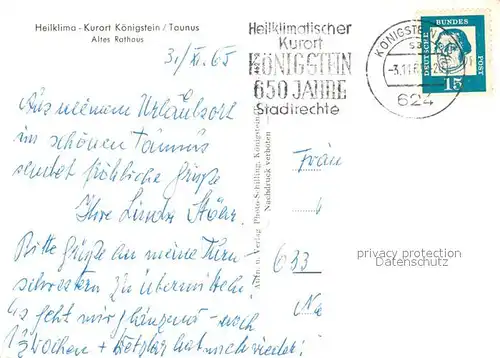 Heilklima - Kurort Königstein / Taunus
Altes Rathaus
3./XI. 65
Heilklimatischer
Kurort
KÖNIGSTEIN
650 JAHRE
Stadtrechte
KÖNIGSTEIN
-3.11.65
624
DEUTSCHE BUNDESPOST
15
Aus meinem Urlaubsort
im schönen Taunus
sendet fröhliche Grüße
Ihre Linda
Bitte Grüße an meine Turn-
schwestern zu übermitteln.
Es geht mir glänzend - noch
2 Wochen + Wetzlar hat mich wieder!
Aufn. u. Verlag Photo-Schilling, Königstein
Nachdruck verboten
Frau
633
privacy protection
Datenschutz